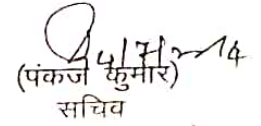 (पंकज कुमार)
सचिव